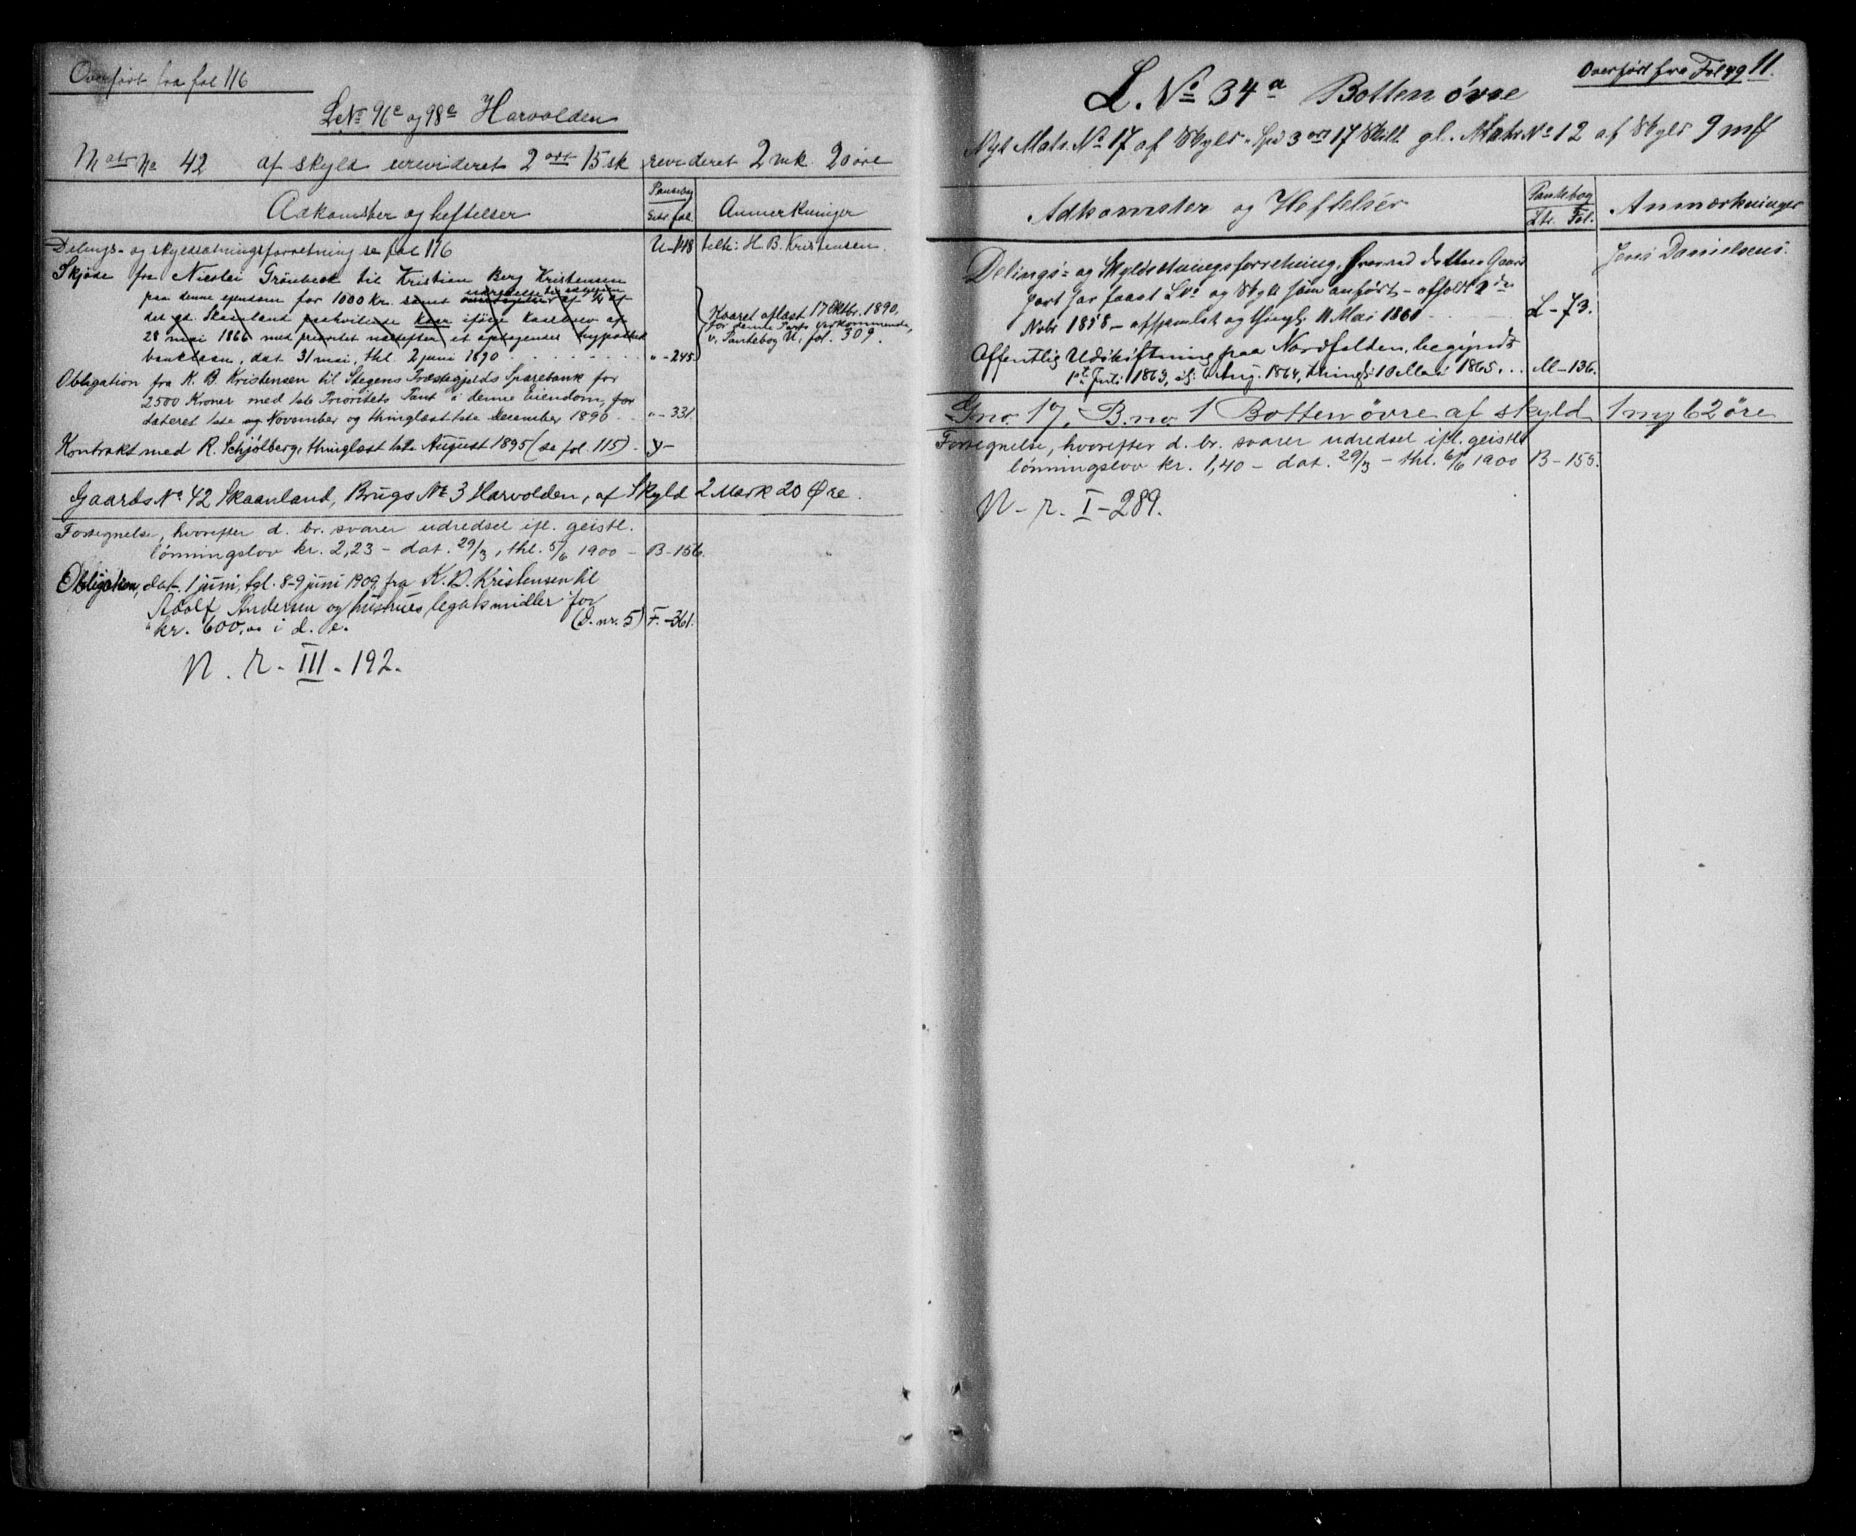 Overført fra fol 116
L.No 96c og 98c Harvolden
Mats No 42 af skyld urevideret 2 ort 15 sk revideret 2 mk. 20 øre
Adkomster og heftelser
Pantebog
Litr. fol.
Anmerkninger
Delings- og skyldsætningsforretning se fol 116
U-148
tilh: H. B. Kristensen.
Skjøde fra Nicolai Grönbeck til Kristian Berg Kristensen
paa denne eiendom for 1000 kr. samt
28 mai 1866 med prioritet næstefter et optagendes hypothek
banklaan, dat. 31 mai, thl. 2 juni 1890
"-245
Kaaret aflæst 17 Oktbr. 1890,
for denne Parts Vedkommende,
v. Pantebog U, fol. 309.
Obligation fra K. B. Kristensen til Stegens Præstegjelds Sparebank for
2500 Kroner med 1ste Prioritets Pant i denne Eiendom, for
dateret 1ste og November og thinglæst 1ste December 1890
"-331
Kontrakt med R. Schjølberg, thinglæst 1ste August 1895 (se fol. 115).
Y-
Gaards No 42 Skaanland, Brugs No 3 Harvolden, af Skyld 2 Mark 20 Øre.
Forsegnelse, hvorefter d. br. svarer udredsel ifl. geistl.
lønningslov kr. 2,23 - dat. 29/3, thl. 5/6 1900 -
B-156.
Obligation, dat. 1 juni, tgl. 8-9 juni 1909 fra K. B. Kristensen til
Adolf Andersen og hustrues legatsmidler for
kr. 600,00 i d. e. (d. nr. 5)
F.-361.
N. r. III - 192.
Overført fra Fol 49 11.
L. No 34a Botten øvre
Nyt Mats. No 17 af Skyld. Spd 3 ort 17 Skill gl. Matr No 12 af Skyld 9 mk
Adkomster og Heftelser
Pantebog
Ltr. Fol.
Anmærkninger
Delings- og Skyldsetningsforretning, hvorved dette Gaard
part har faaet Lno og Skyld som anført - afholdt 2den
Nobr 1858 - afhjemlet og thingl. 11 Mai 1860
L-73.
Jens Danielsens.
Offentlig Udskiftning paa Nordfolden, begyndt
1st Juli 1863, Aug. 1864, thingl. 10 Mai 1865...
M-136.
Gno. 17, B.no. 1 Botten øvre af skyld 1 my 62 øre
Forsegnelse, hvorefter d. br. svarer udredsel ifl. geistl
lønningslov kr. 1,40 - dat. 29/3 - thl. 6/6 1900
B-155.
N - r. I-289.